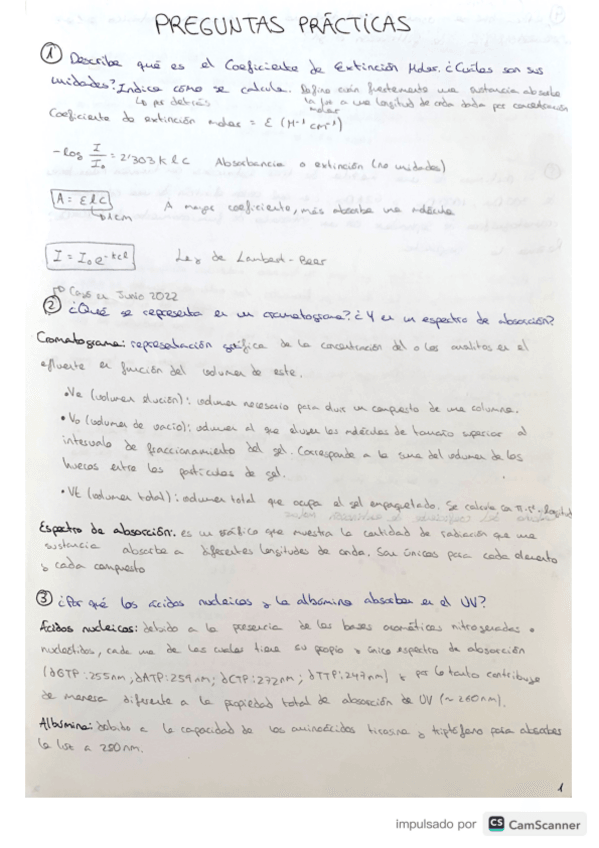 PREGUNTAS PRÁCTICAS
① Describe qué es el Coeficiente de Extinción Molar. ¿Cuáles son sus
unidades? Indica cómo se calcula. Define cuán fuertemente una sustancia absorbe
↳ por detrás la luz a una longitud de onda dada por concentración
molar
Coeficiente de extinción molar = ε (M⁻¹ cm⁻¹)
-log I/I₀ = 2'303 k l c Absorbancia o extinción (no unidades)
A = ε l c
↳ 1cm
A mayor coeficiente, más absorbe una molécula
I = I₀ e^-kcl Ley de Lambert-Beer
Cayó en Junio 2022
② ¿Qué se representa en un cromatograma? ¿Y en un espectro de absorción?
Cromatograma: representación gráfica de la concentración del o los analitos en el
efluente en función del volumen de este.
• Ve (volumen elución): volumen necesario para eluir un compuesto de una columna.
• Vo (volumen de vacío): volumen al que eluyen las moléculas de tamaño superior al
intervalo de fraccionamiento del gel. Corresponde a la suma del volumen de los
huecos entre las partículas de gel.
• Vt (volumen total): volumen total que ocupa el gel empaquetado. Se calcula con π·r²·longitud
Espectro de absorción: es un gráfico que muestra la cantidad de radiación que una
sustancia absorbe a diferentes longitudes de onda. Son únicos para cada elemento
y cada compuesto
③ ¿Por qué los ácidos nucleicos y la albúmina absorben en el UV?
Ácidos nucleicos: debido a la presencia de las bases aromáticas nitrogenadas o
nucleótidos, cada una de las cuales tiene su propio y único espectro de absorción
(dGTP: 255nm, dATP: 259nm; dCTP: 272nm; dTTP: 247nm) y por lo tanto contribuye
de manera diferente a la propiedad total de absorción de UV (~ 260nm).
Albúmina: debido a la capacidad de los aminoácidos tirosina y triptófano para absorber
la luz a 280nm.
1
impulsado por CS CamScanner